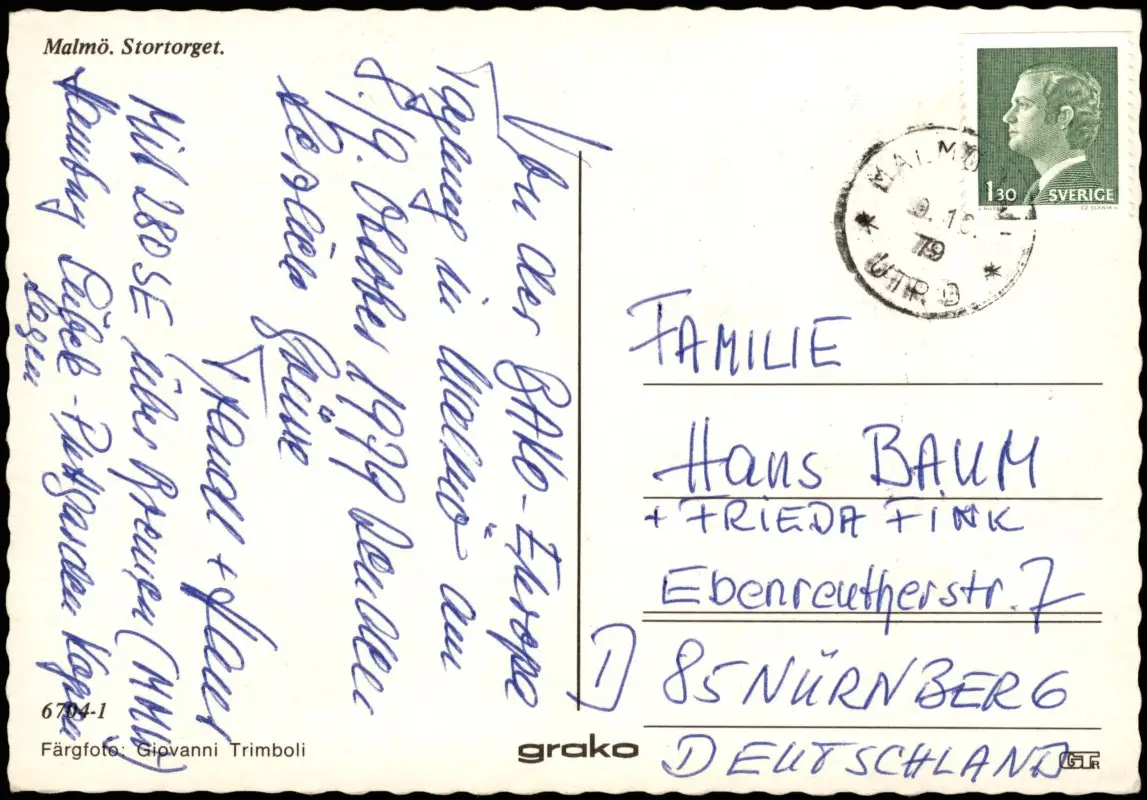 Malmö. Stortorget.
Von der BAKO-Europa
Tagung in Malmö am
8./9. Oktober 1979 senden
herzliche Grüße
Traudl + Hans
Mit 280 SE über Bremen (MMM)
Hamburg Lübeck-Puttgarden Kopen
hagen
6704-1
Färgfoto: Giovanni Trimboli
grako
GTR
SVERIGE
1 30
MALMÖ
9. 10.
79
UTR Ö
FAMILIE
Hans BAUM
+ FRIEDA FINK
Ebenreutherstr. 7
D 85 NÜRNBERG
DEUTSCHLAND